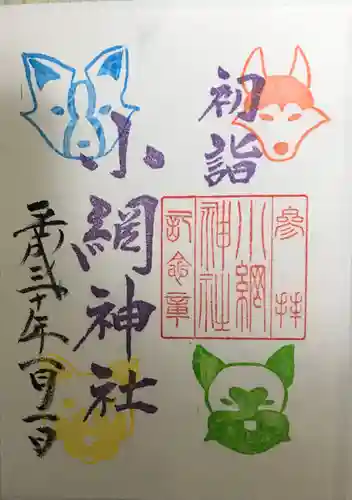 初詣
参拝
小網
神社
記念章
小網神社
平成三十年一月二日